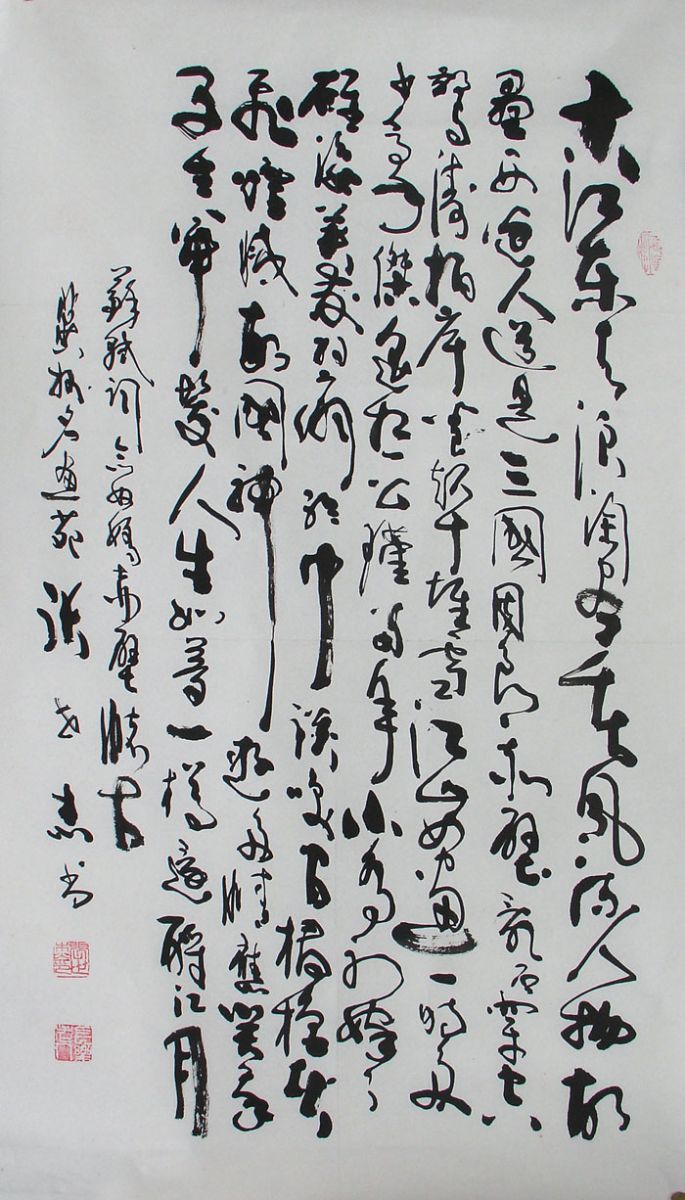 大江東去浪淘盡千古風流人物故
壘西邊人道是三國周郎赤壁亂石穿空
驚濤拍岸捲起千堆雪江山如畫一時多
少豪傑遙想公瑾當年小喬初嫁了
雄姿英發羽扇綸巾談笑間檣櫓灰
飛煙滅故國神遊多情應笑我
早生華髮人生如夢一樽還酹江月
蘇軾詞念奴嬌赤壁懷古
名画苑張志书